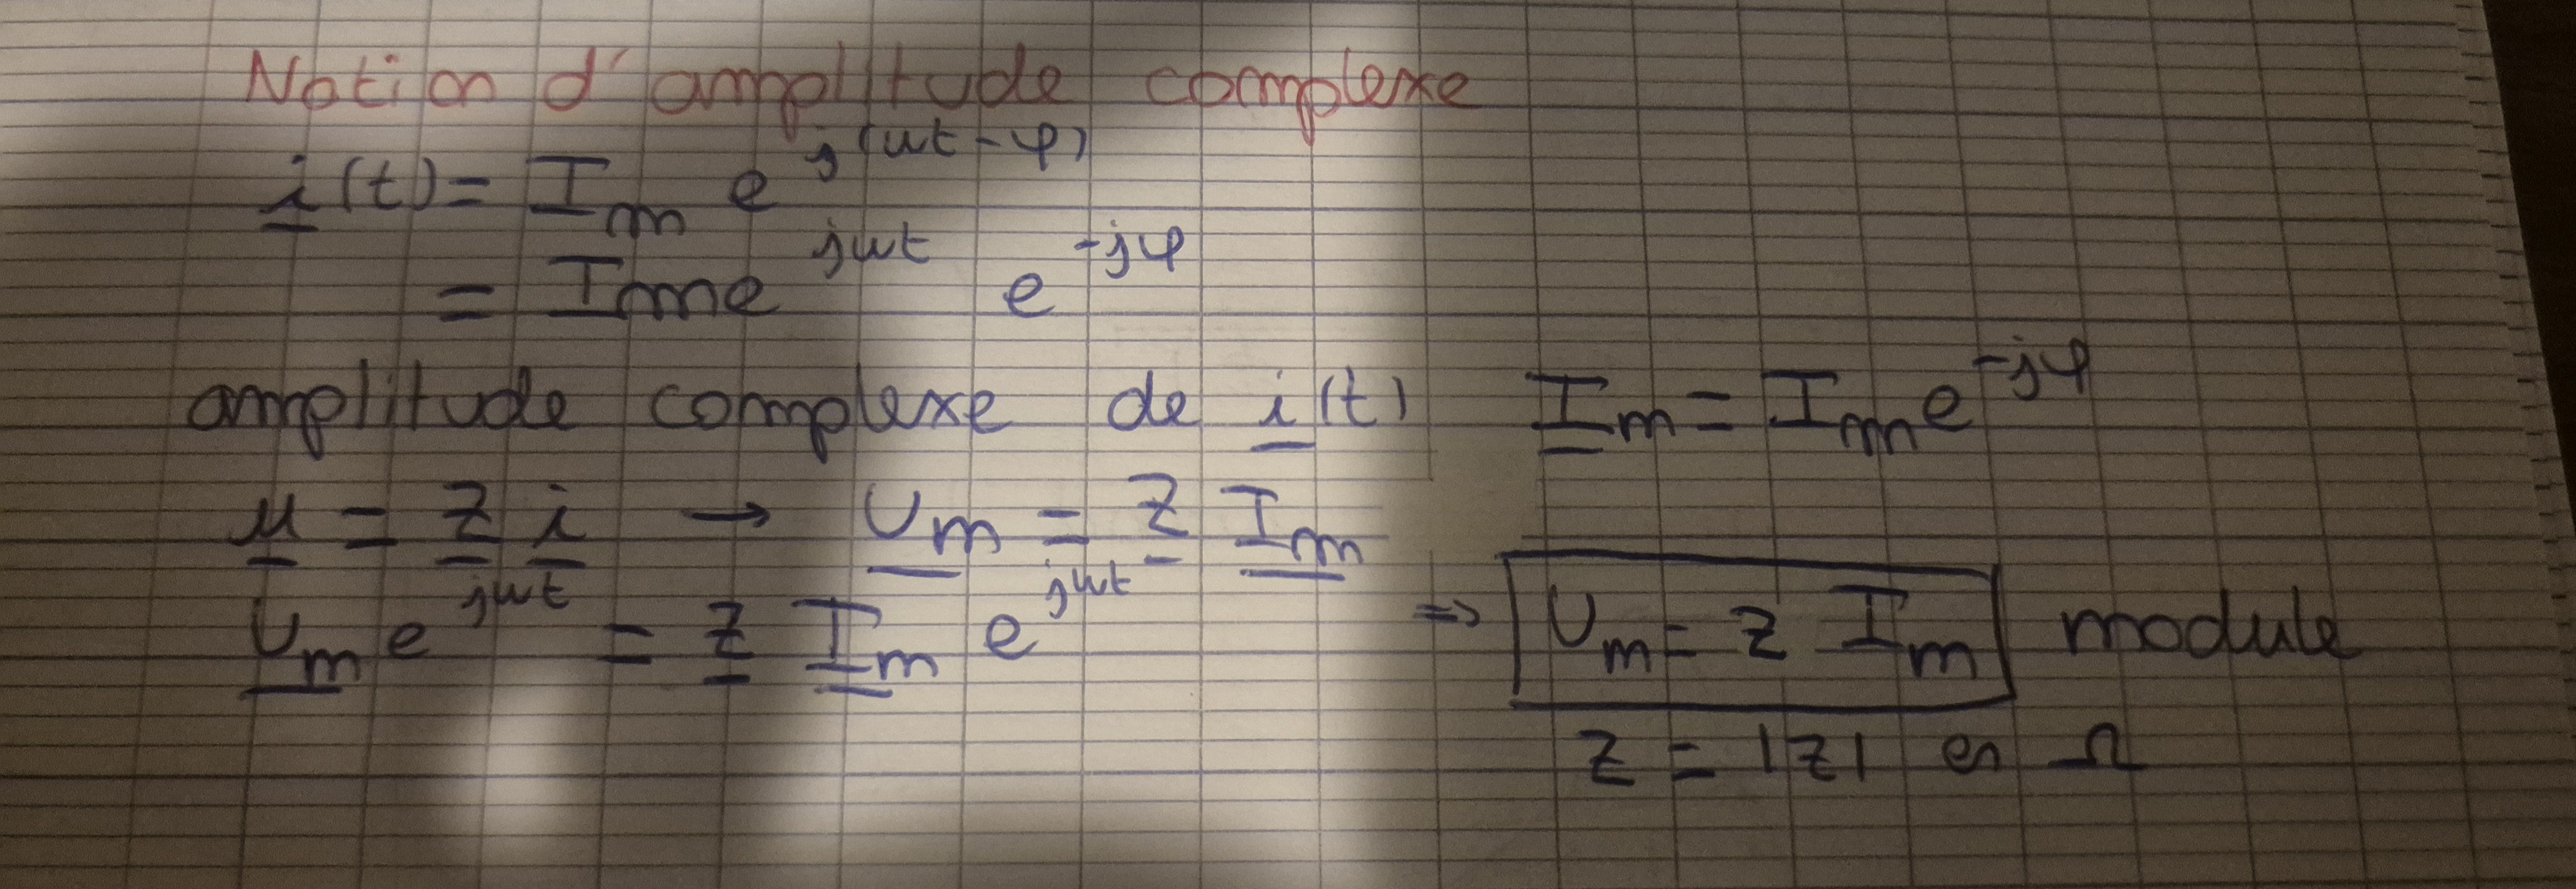 Notion d'amplitude complexe
i(t) = Im e^j(ωt - φ)
= Im e^jωt e^-jφ
amplitude complexe de i(t) Im = Im e^-jφ
u = Z i → Um = Z Im
Um e^jωt = Z Im e^jωt ⇒ Um = Z Im module
Z = |Z| en Ω